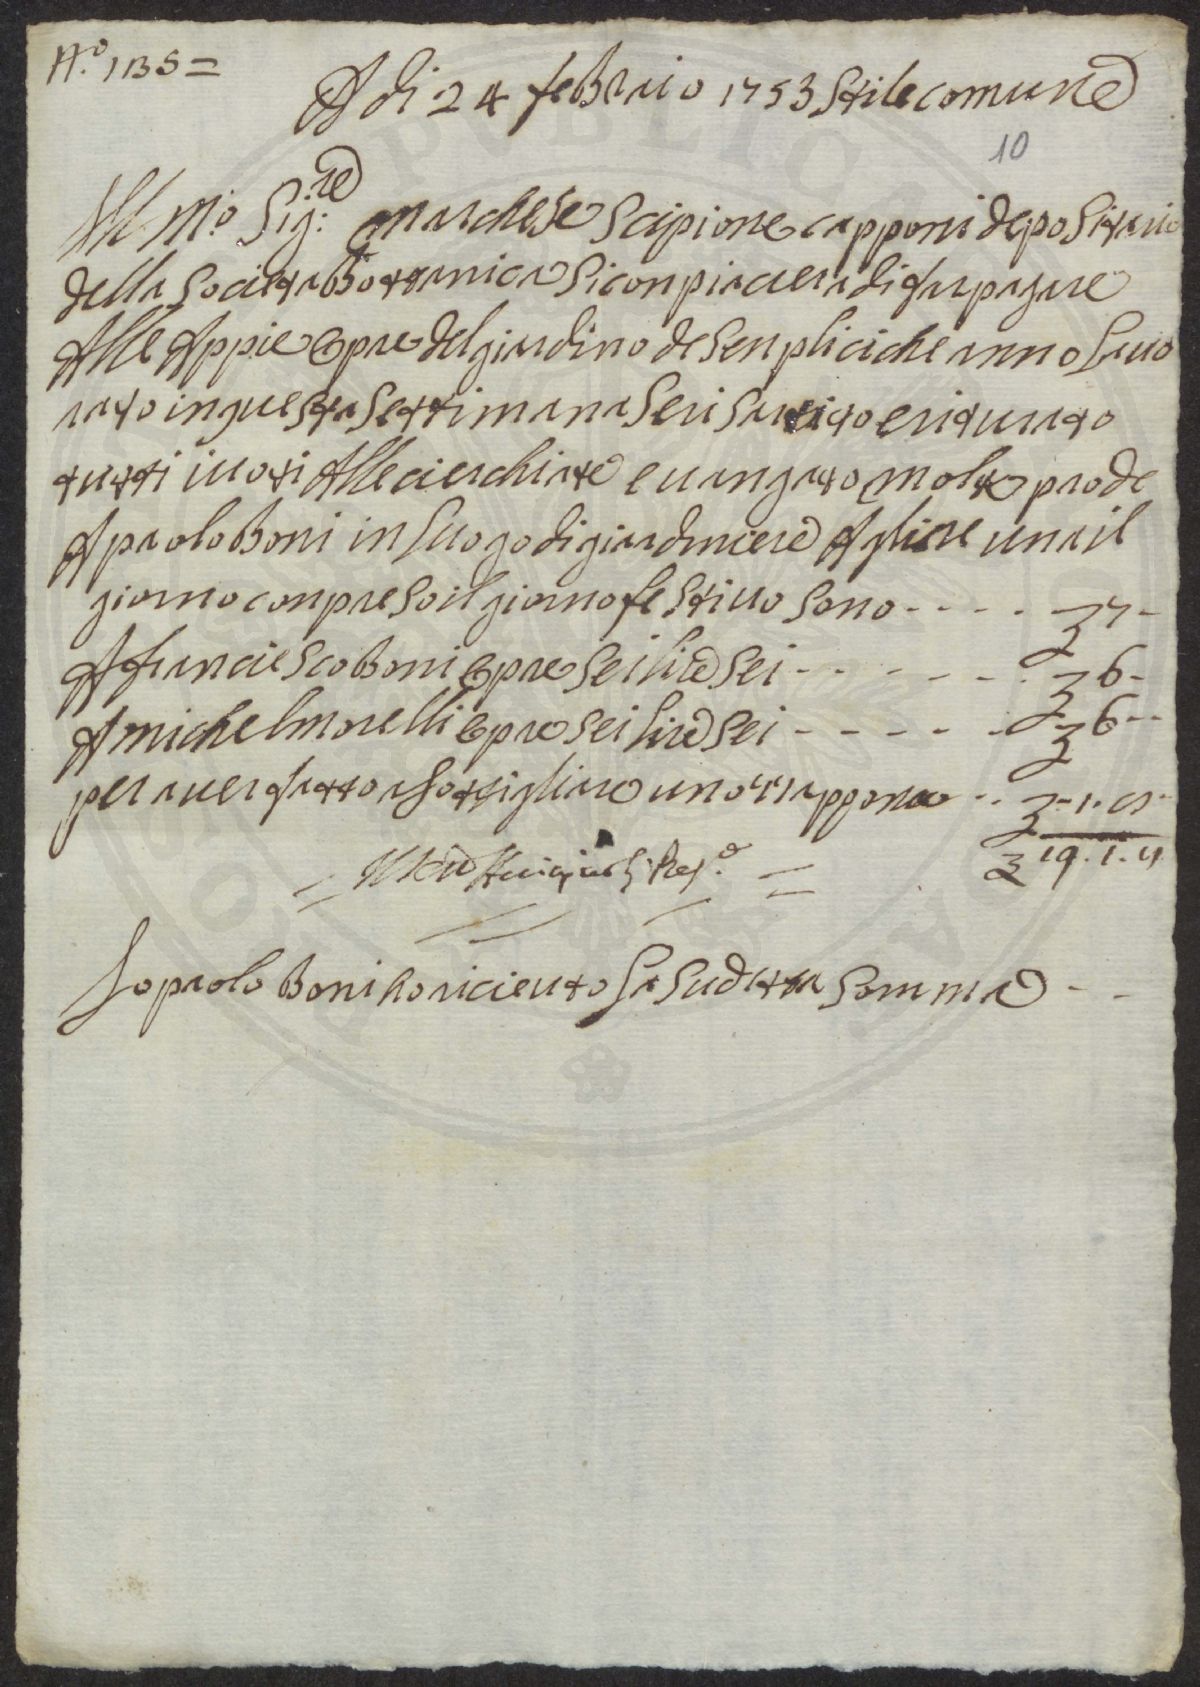 N.º 1135 =
A di 24 febraio 1753 stile comune
10
Ill. mº Sig:re marchese Scipione capponi depositario
della Societa Bottanica Si conpiacera di far pagare
Alle Appie opre del giardino de Senplici che anno lauo
rato in questa Settimana Seri Sarcito e riturato
tutti i uoti Alle cierchiate e uangato molte prode
A paolo Boni in luogo di giardiniere A lire una il
giorno conpreso il giorno festiuo sono - - - - 7 -
A franciesco Boni opre Sei lire Sei - - - - - 6 -
A michel morelli opre Sei lire Sei - - - - - 6 -
per auer fatto Asottigliare una - - 1 -
19 . 1 . 4
Io paolo Boni ho riceuto la Sudetta Somma - -